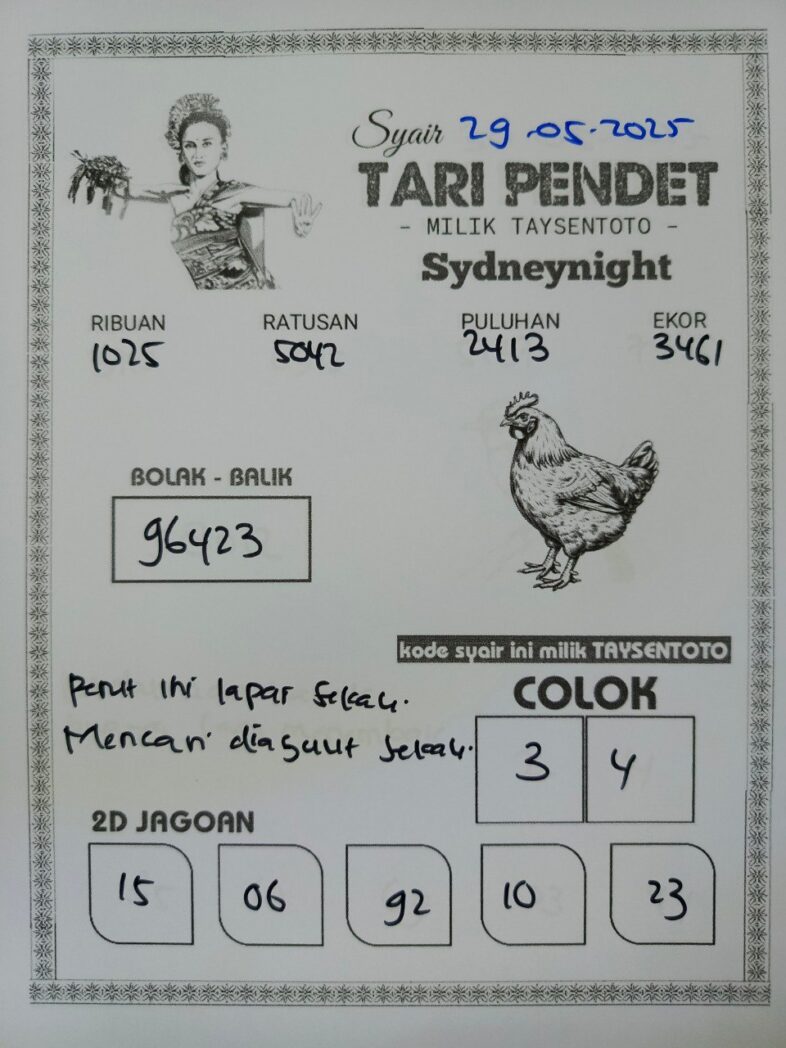 Syair 29.05.2025
TARI PENDET
- MILIK TAYSENTOTO -
Sydneynight
RIBUAN RATUSAN PULUHAN EKOR
1025 5042 2413 3461
BOLAK - BALIK
96423
kode syair ini milik TAYSENTOTO
Perut ini lapar sekali.
Mencari sekali.
COLOK
3 4
2D JAGOAN
15 06 92 10 23